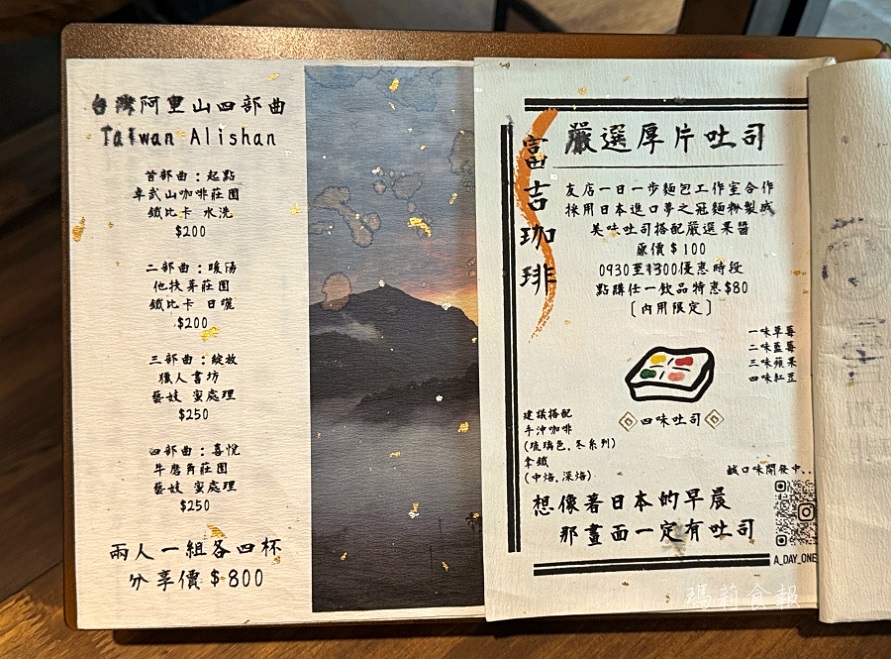 台灣阿里山四部曲
Taiwan Alishan
首部曲：起點
卓武山咖啡莊園
鐵比卡 水洗
$200
二部曲：暖陽
他扶芽莊園
鐵比卡 日曬
$200
三部曲：綻放
獵人書坊
藝妓 蜜處理
$250
四部曲：喜悅
牛磨角莊園
藝妓 蜜處理
$250
兩人一組各四杯
分享價 $800
富吉珈琲
嚴選厚片吐司
友店一日一步麵包工作室合作
採用日本進口夢之冠麵粉製成
美味吐司搭配嚴選果醬
原價$100
0930至1300優惠時段
點購任一飲品特惠$80
〔內用限定〕
一味草莓
二味藍莓
三味蘋果
四味紅豆
四味吐司
建議搭配
手沖咖啡
(琉璃色.冬系列)
拿鐵
(中焙.深焙)
鹹口味開發中..
想像著日本的早晨
那畫面一定有吐司
A_DAY_ONE
瑪莉食報